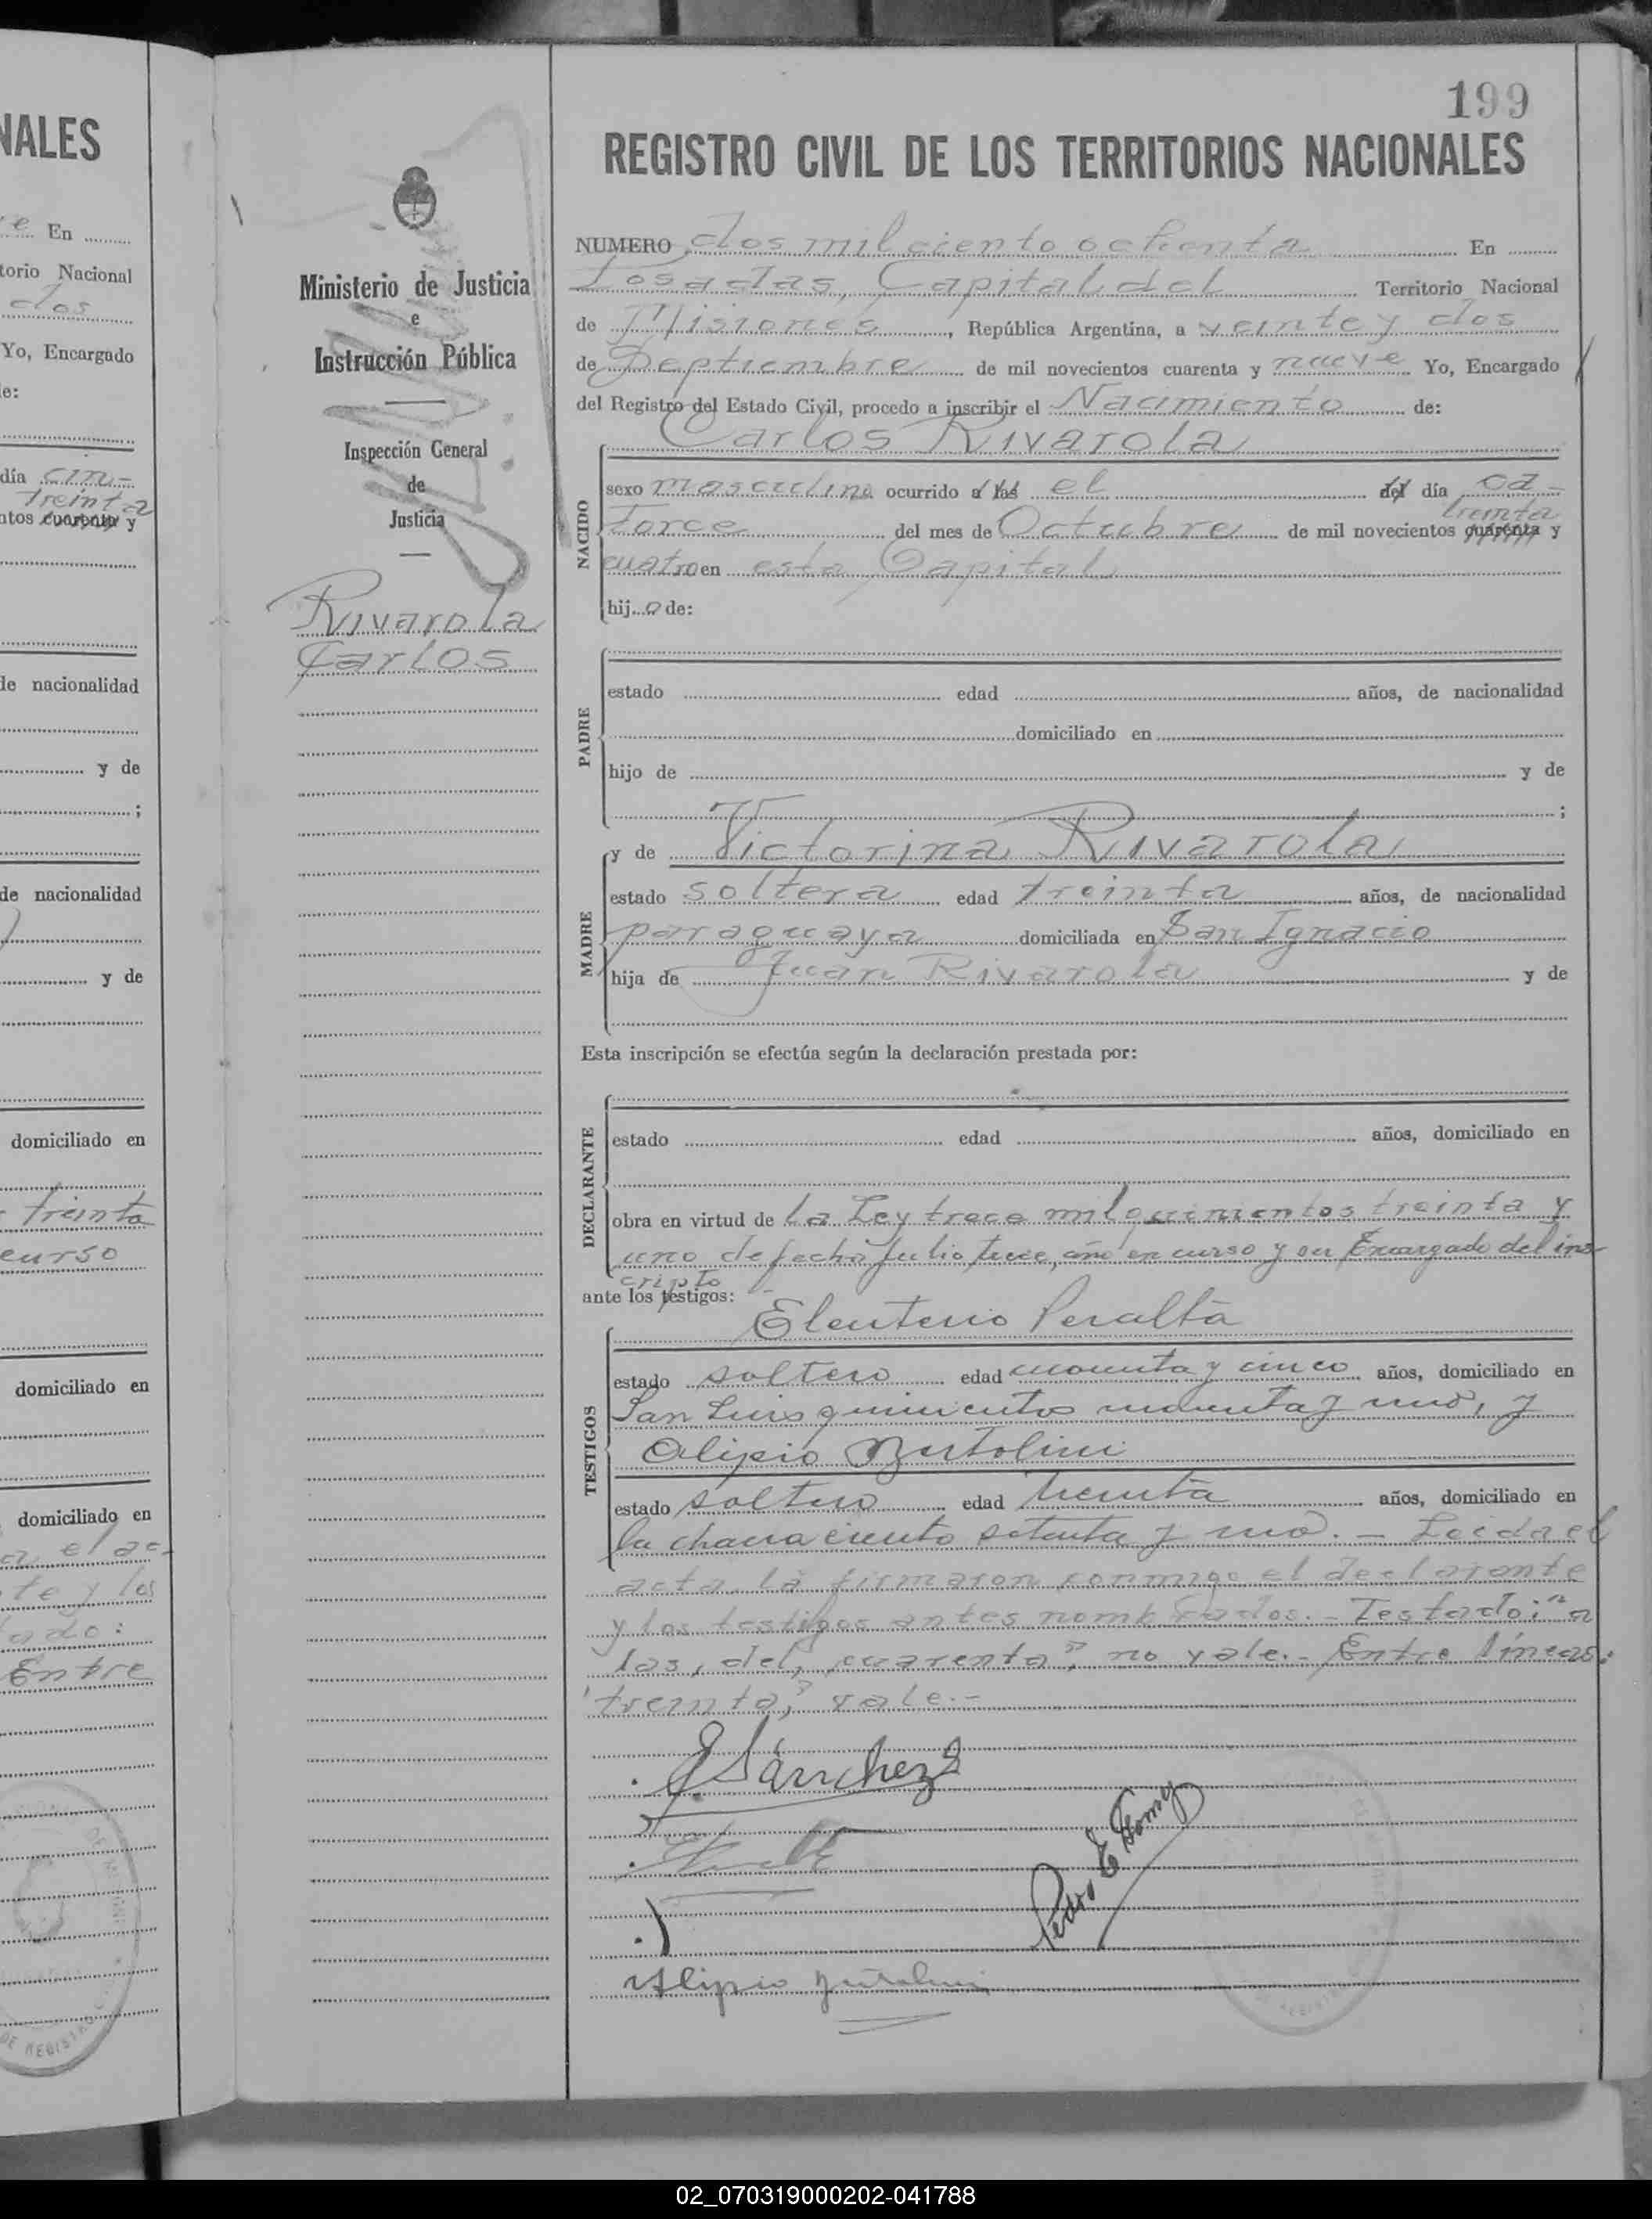 NALES
e En
torio Nacional
dos
Yo, Encargado
de:
día cin-
treinta
ntos cuarenta y
de nacionalidad
y de
;
de nacionalidad
y de
domiciliado en
treinta
curso
domiciliado en
domiciliado en
a el ac-
te y los
ado:
Entre
Ministerio de Justicia
e
Instrucción Pública
Inspección General
de
Justicia
Rivarola
Carlos
199
REGISTRO CIVIL DE LOS TERRITORIOS NACIONALES
NUMERO dos mil ciento ochenta En
Posadas, Capital del Territorio Nacional
de Misiones, República Argentina, a veinte y dos
de Septiembre de mil novecientos cuarenta y nueve Yo, Encargado
del Registro del Estado Civil, procedo a inscribir el Nacimiento de:
Carlos Rivarola
NACIDO
sexo masculino ocurrido a las el del día ca-
treinta
torce del mes de Octubre de mil novecientos cuarenta y
cuatro en esta Capital
hijo de:
PADRE
estado edad años, de nacionalidad
domiciliado en
hijo de y de
;
MADRE
y de Victorina Rivarola
estado soltera edad treinta años, de nacionalidad
paraguaya domiciliada en San Ignacio
hija de Juan Rivarola y de
Esta inscripción se efectúa según la declaración prestada por:
DECLARANTE
estado edad años, domiciliado en
obra en virtud de la Ley trece mil quinientos treinta y
uno de fecha julio trece, año en curso y su Encargado del ins-
cripto
ante los testigos:
TESTIGOS
Eleuterio Peralta
estado soltero edad cuarenta y cinco años, domiciliado en
San Luis quinientos noventa y uno, y
Alipio Bertolini
estado soltero edad treinta años, domiciliado en
la chacra ciento setenta y uno. - Leida el
acta, la firmaron conmigo el declarante
y los testigos antes nombrados. - Testado: "a
las, del, cuarenta", no vale. - Entre líneas:
"treinta", vale. -
Sánchez
Pedro E Gomez
Alipio Bertolini
02_070319000202-041788